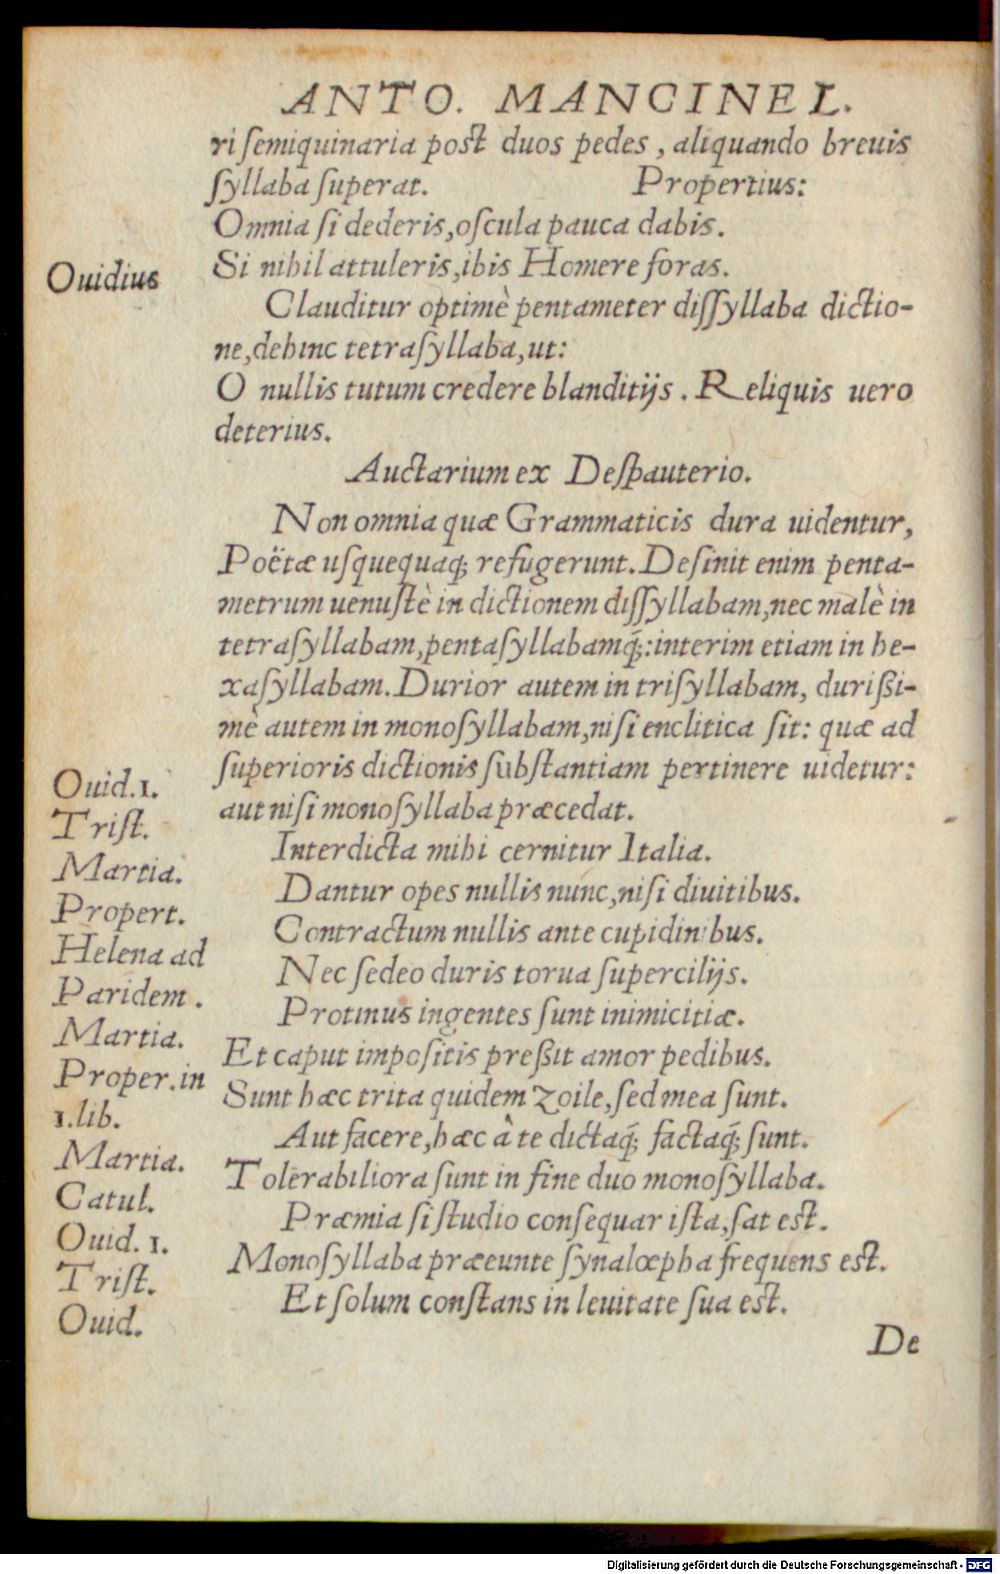 ANTO. MANCINEL.
ri ſemiquinaria post duos pedes, aliquando breuis
ſyllaba ſuperat. Propertius:
Omnia ſi dederis, oſcula pauca dabis.
Ouidius
Si nihil attuleris, ibis Homere foras.
Clauditur optimè pentameter diſſyllaba dictio-
ne, dehinc tetraſyllaba, ut:
O nullis tutum credere blanditijs. Reliquis uero
deterius.
Auctarium ex Deſpauterio.
Non omnia quæ Grammaticis dura uidentur,
Poëtæ uſquequaq; refugerunt. Deſinit enim penta-
metrum uenuſtè in dictionem diſſyllabam, nec malè in
tetraſyllabam, pentaſyllabamq́;: interim etiam in he-
xaſyllabam. Durior autem in triſyllabam, durißi-
mè autem in monoſyllabam, niſi enclitica ſit: quæ ad
ſuperioris dictionis ſubſtantiam pertinere uidetur:
aut niſi monoſyllaba præcedat.
Ouid. 1.
Triſt.
Martia.
Propert.
Helena ad
Paridem.
Martia.
Proper. in
1. lib.
Martia.
Catul.
Ouid. 1.
Triſt.
Ouid.
Interdicta mihi cernitur Italia.
Dantur opes nullis nunc, niſi diuitibus.
Contractum nullis ante cupidinibus.
Nec ſedeo duris torua ſupercilijs.
Protinus ingentes ſunt inimicitiæ.
Et caput impoſitis preßit amor pedibus.
Sunt hæc trita quidem Zoile, ſed mea ſunt.
Aut facere, hæc à te dictaq́; factaq́; ſunt.
Tolerabiliora ſunt in fine duo monoſyllaba.
Præmia ſi ſtudio conſequar iſta, ſat eſt.
Monoſyllaba præeunte ſynalœpha frequens eſt.
Et ſolum conſtans in leuitate ſua eſt.
De
Digitalisierung gefördert durch die Deutsche Forschungsgemeinschaft - DFG